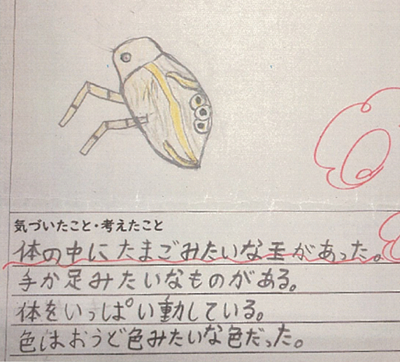 気づいたこと・考えたこと
体の中にたまごみたいな玉があった。
手か足みたいなものがある。
体をいっぱい動している。
色はおうど色みたいな色だった。